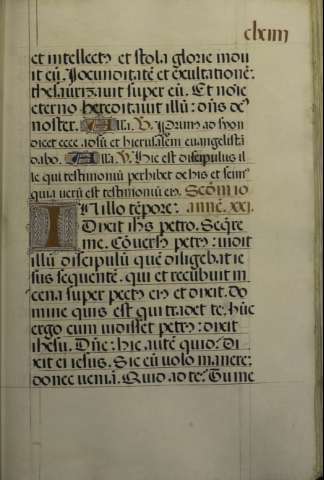 clxiiii
et intellectꝰ et stola glorie indu
it eū. Iocunditatē et exultationē:
thesaurizauit super eū. Et noīe
eterno hereditauit illū: dn̄s deꝰ
noster. Alla. V. Primꝰ ad syon
dicet ecce adsū et hierusalem euangelistā
dabo. Alla. V. Hic est discipulus il
le qui testimoniū perhibet de his et scimꝰ
quia uerū est testimoniū eiꝰ. Scdm̄ io
IN illo tēpore: annē. xxi.
Dixit ihs petro. Seqre
me. Cōuersꝰ petrꝰ: uidit
illū discipulū quē diligebat ie
sus sequentē. qui et recubuit in
cena super pectꝰ eiꝰ et dixit. Do
mine quis est qui tradet te. Hūc
ergo cum uidisset petrꝰ: dixit
ihesu. Dn̄e: hic autē quid? Di
xit ei iesus. Sic eū uolo manere:
donec ueniā. Quid ad te? Tu me